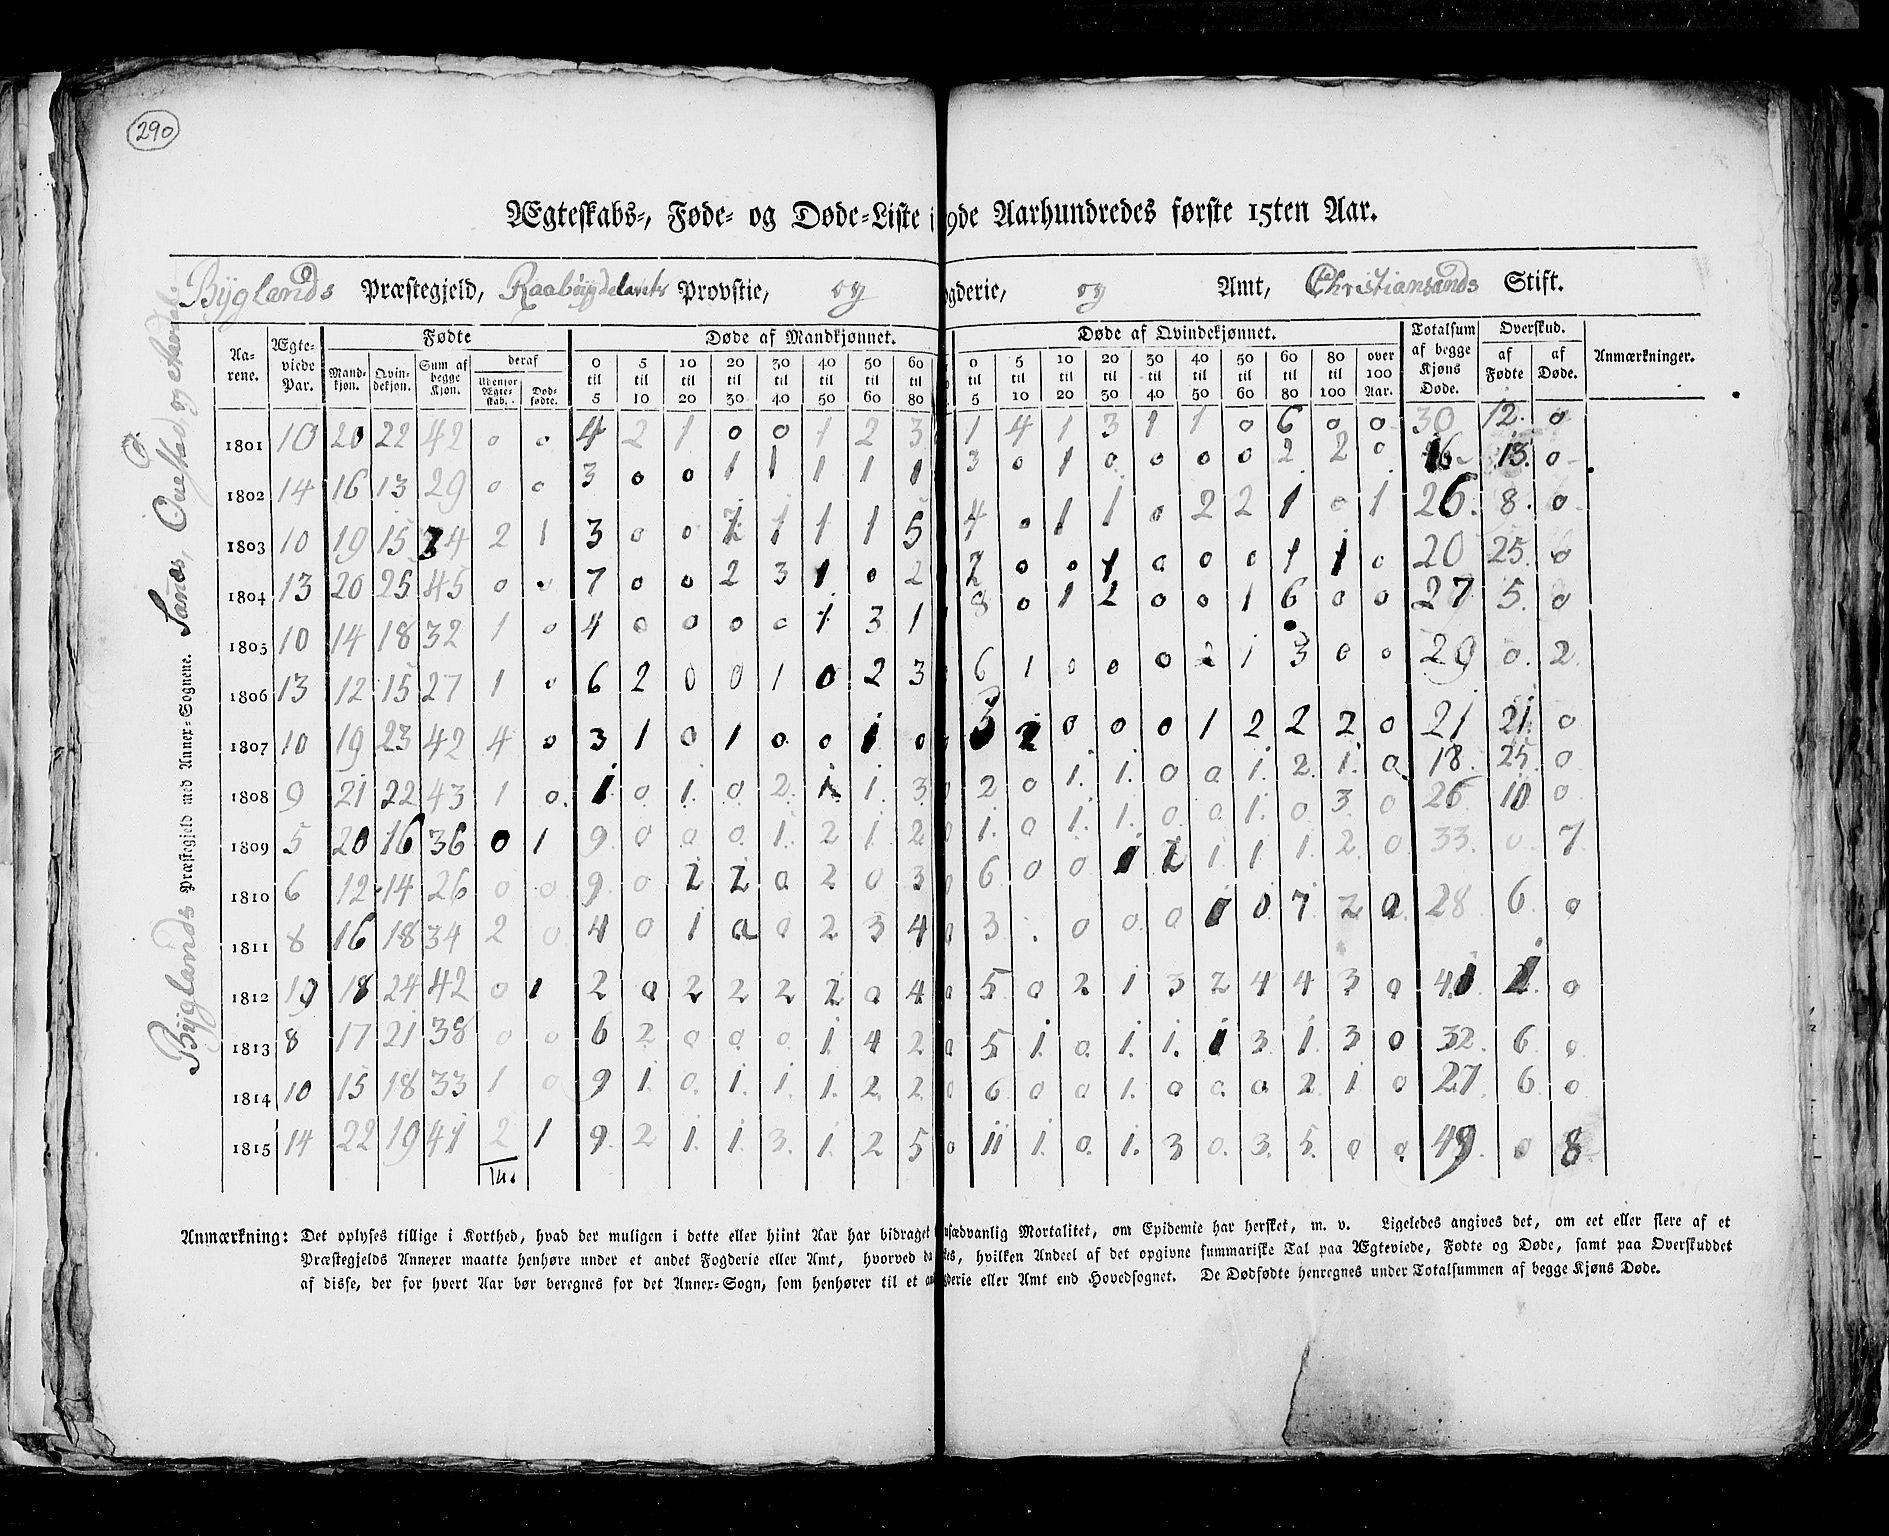 290
Ægteskabs-, Føde- og Døde-Liste i 9de Aarhundredes første 15ten Aar.
Byglands Præstegjeld, Raabøygdelavets Provstie, og ogderie, og Amt, Christiansands Stift.
Byglands Præstegjeld med Annex-Sognene. Sanæs,
Aarene. Ægteviede Par. Fødte Døde af Mandkjønnet. Døde af Qvindekjønnet. Totalsum af begge Kjøns Døde. Overskud. Anmærkninger.
Mandkjøn. Qvindekjøn. Sum af begge Kjøn. deraf af Fødte af Døde.
Udenfor Ægteskab. Dødfødte.
0 til 5 5 til 10 10 til 20 20 til 30 30 til 40 40 til 50 50 til 60 60 til 80 0 til 5 5 til 10 10 til 20 20 til 30 30 til 40 40 til 50 50 til 60 60 til 80 80 til 100 over 100 Aar.
1801 10 20 22 42 0 0 4 2 1 0 0 1 2 3 1 4 1 3 1 1 0 6 0 0 30 12. 0
1802 14 16 13 29 0 0 3 0 0 1 1 1 1 1 3 0 1 0 0 0 0 2 2 0 16 13. 0
1803 10 19 15 34 2 1 3 0 0 1 1 1 5 4 0 1 1 0 2 2 1 0 1 26. 8. 0
1804 13 20 25 45 0 0 7 0 0 2 3 1 0 2 2 0 0 1 0 0 0 1 1 0 20 25. 0
1805 10 14 18 32 1 0 4 0 0 0 0 1 3 1 8 0 1 2 0 0 1 6 0 0 27 5. 0
1806 13 12 15 27 1 0 6 2 0 0 1 0 2 3 6 1 0 0 0 2 1 3 0 0 29 0. 2.
1807 10 19 23 42 4 0 3 1 0 1 0 0 1 0 3 0 0 0 1 2 2 2 0 21 21. 0
1808 9 21 22 43 1 0. 1 0 1. 0 2. 1. 1. 3 2 0 1. 1. 0 0 1. 2. 1. 0 18. 25. 0
1809 5 20 16 36 0 1 9 0 0 0 1. 2 1. 2 1. 0 1. 1. 0. 0 1. 0 3. 0 26. 10 0
1810 6 12 14 26 0 0 9. 0 2 2 0 2 0 3 6 0 0 1 2 1 1 1 2. 0 33. 0. 7.
1811 8 16 18 34 2 0 4 0 1 0 0 2 3 4 3 . 0 0 0 1 0 7 2 0 28 6. 0
1812 10 18 24 42 0 1 2 0 2 2 2 2 0 4 0 5 0 2 1 3 2 4 4 3 0 41 1 0
1813 8 17 21 38 0 0 6 2 0 0 0 1 4 2 0 5 1. 0 1. 1. 1 3 1. 3 0 32. 6. 0
1814 10 15 18 33 1 0 9 1. 0 1. 1. 1. 2 2. 0 6 0 0 1. 0 0 0 2 1 0 27. 6 0
1815 14 22 19 41 2 1 9. 2 1. 1. 3. 1. 2 5 0 11 1. 0. 1. 3 0. 3. 5. 0 0 49. 0 8
Anmærkning: Det oplyses tillige i Korthed, hvad der muligen i dette eller hiint Aar har bidraget usædvanlig Mortalitet, om Epidemie har hersket, m. v. Ligeledes angives det, om eet eller flere af et
Præstegjelds Annexer maatte henhøre under et andet Fogderie eller Amt, hvorved da kes, hvilken Andeel af det opgivne summariske Tal paa Ægteviede, Fødte og Døde, samt paa Overskuddet
af disse, der for hvert Aar bør beregnes for det Annex-Sogn, som henhører til et an gderie eller Amt end Hovedsognet. De Dødfødte henregnes under Totalsummen af begge Kjøns Døde.